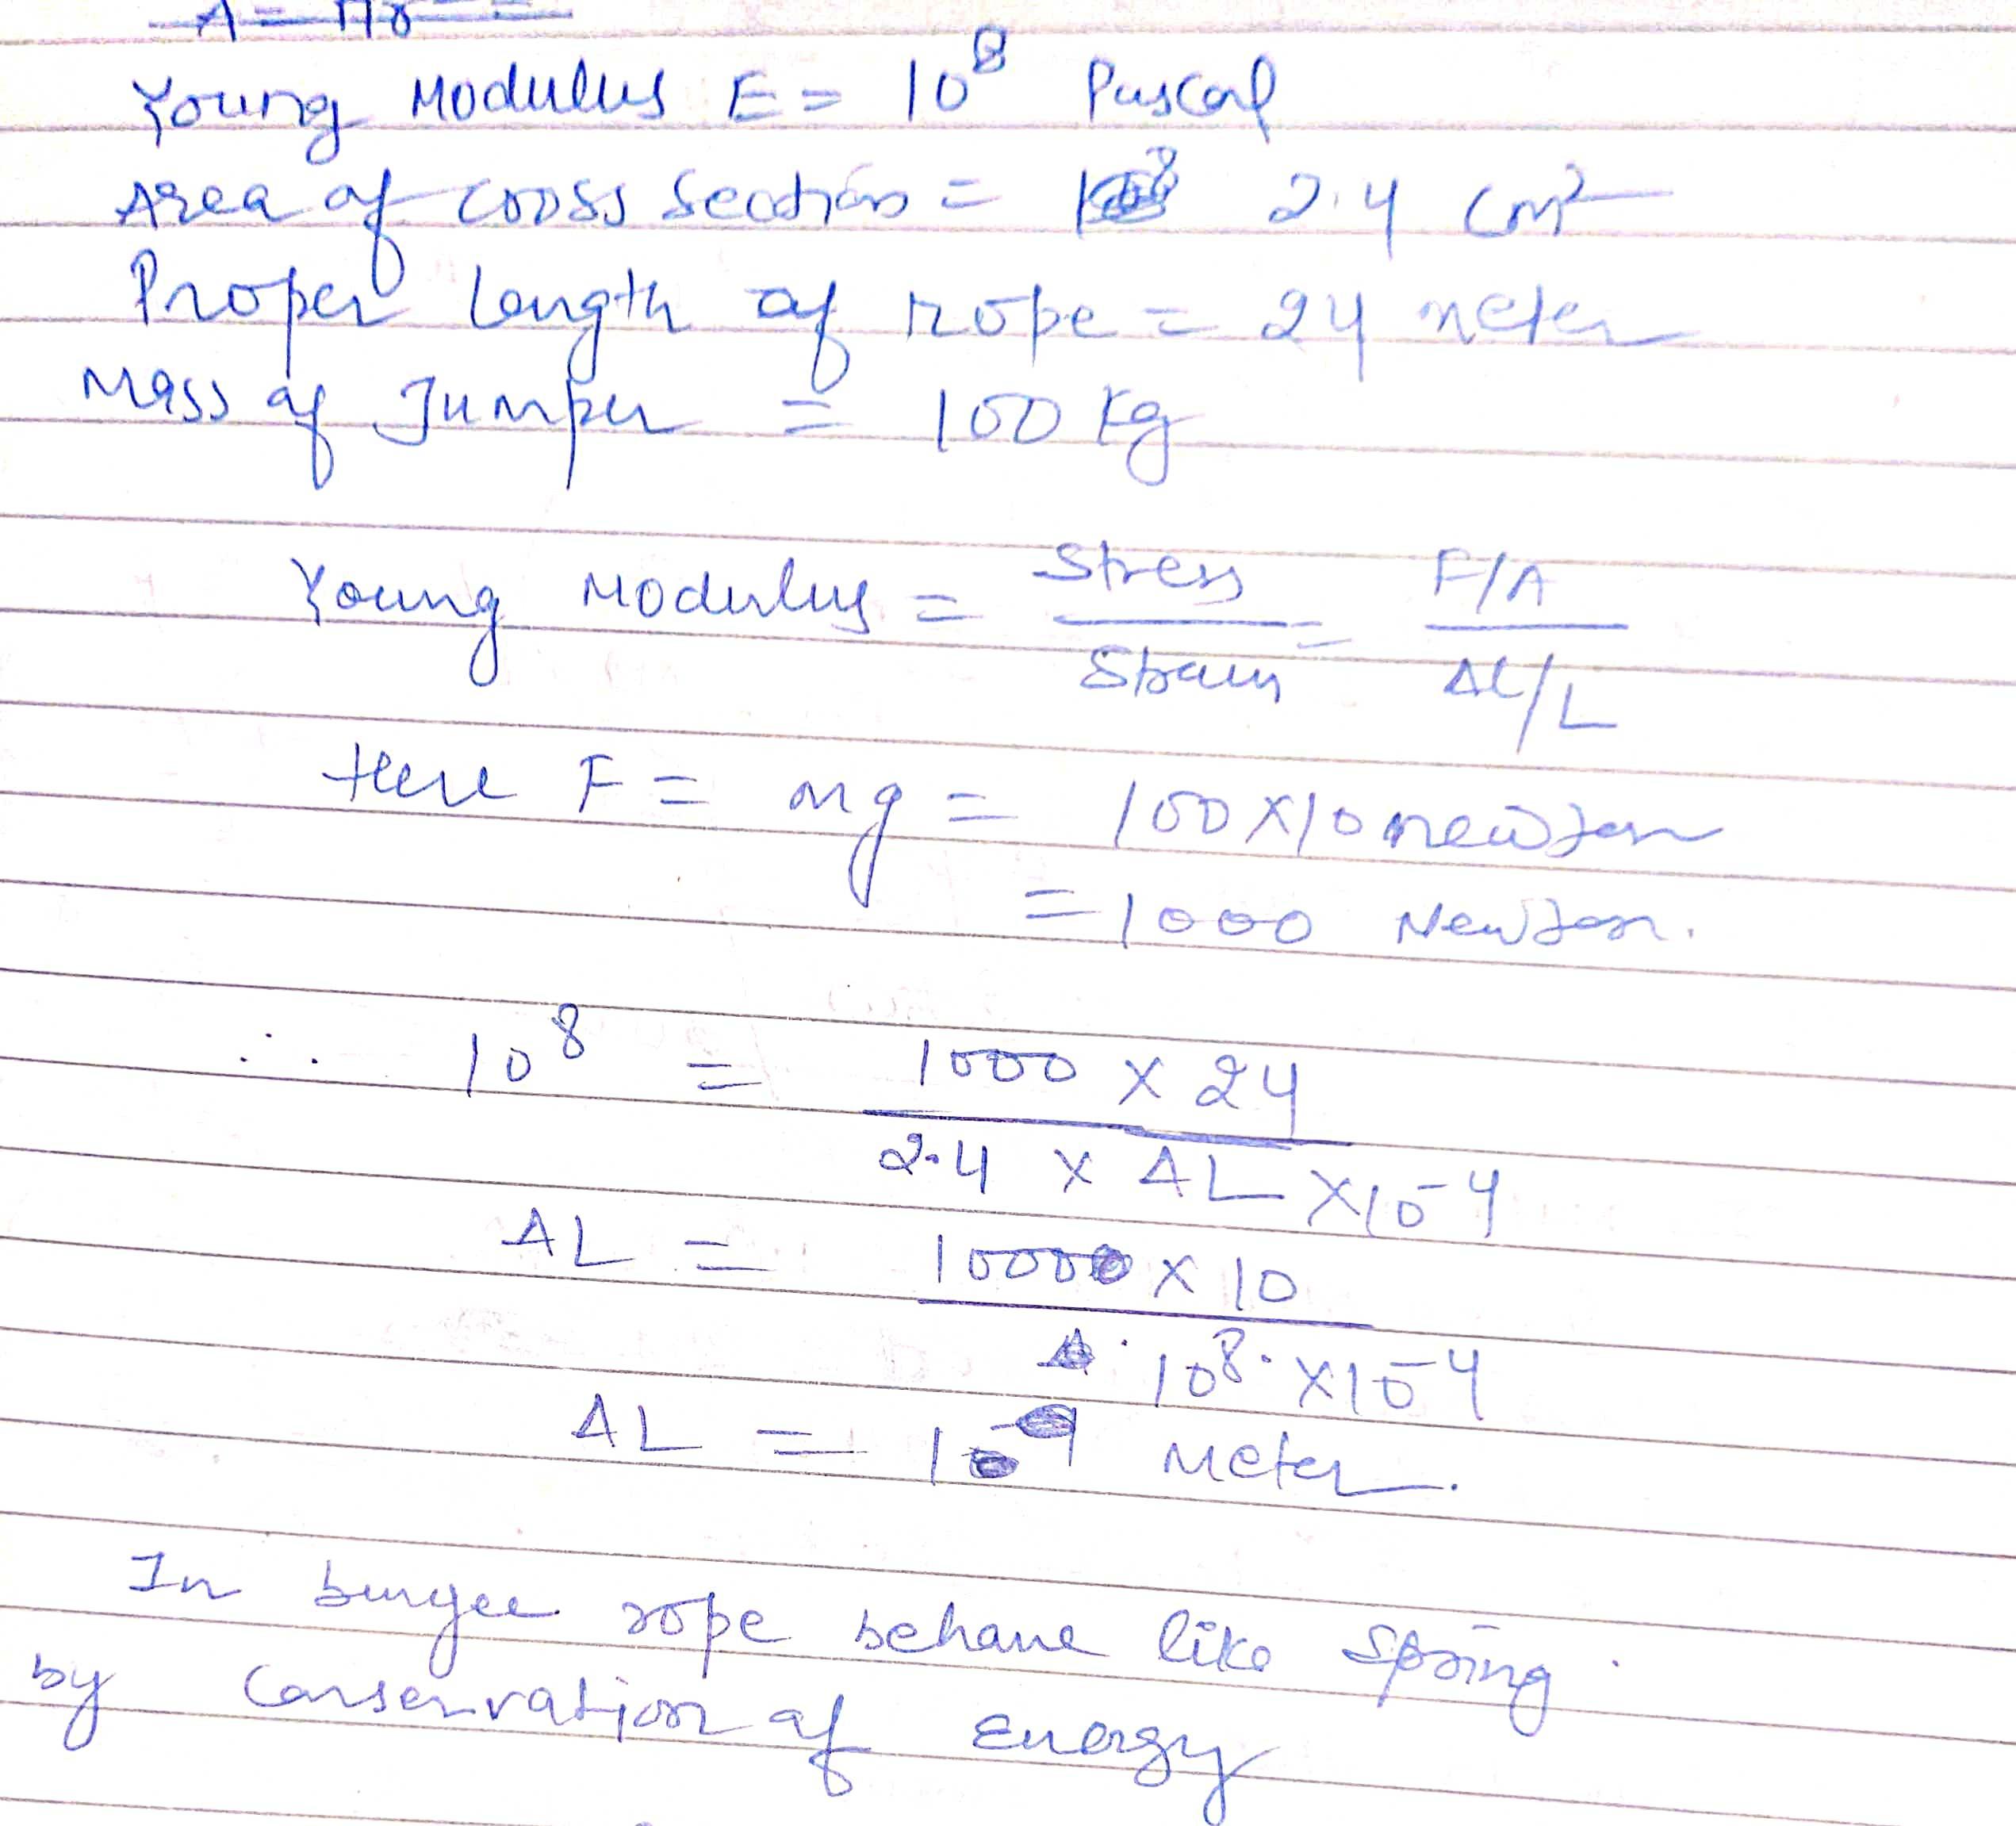 A = πr
Young Modulus E = 10⁸ Pascal
Area of cross section = 2.4 cm²
Proper length of rope = 24 meter
Mass of Jumper = 100 kg
Young Modulus = Stress / Strain = F/A / ΔL/L
Here F = mg = 100 x 10 newton
= 1000 Newton.
∴ 10⁸ = 1000 x 24
2.4 x ΔL x 10⁻⁴
ΔL = 1000 x 10
10⁸ x 10⁻⁴
ΔL = 1 Meter.
In bungee rope behave like spring.
by Conservation of Energy